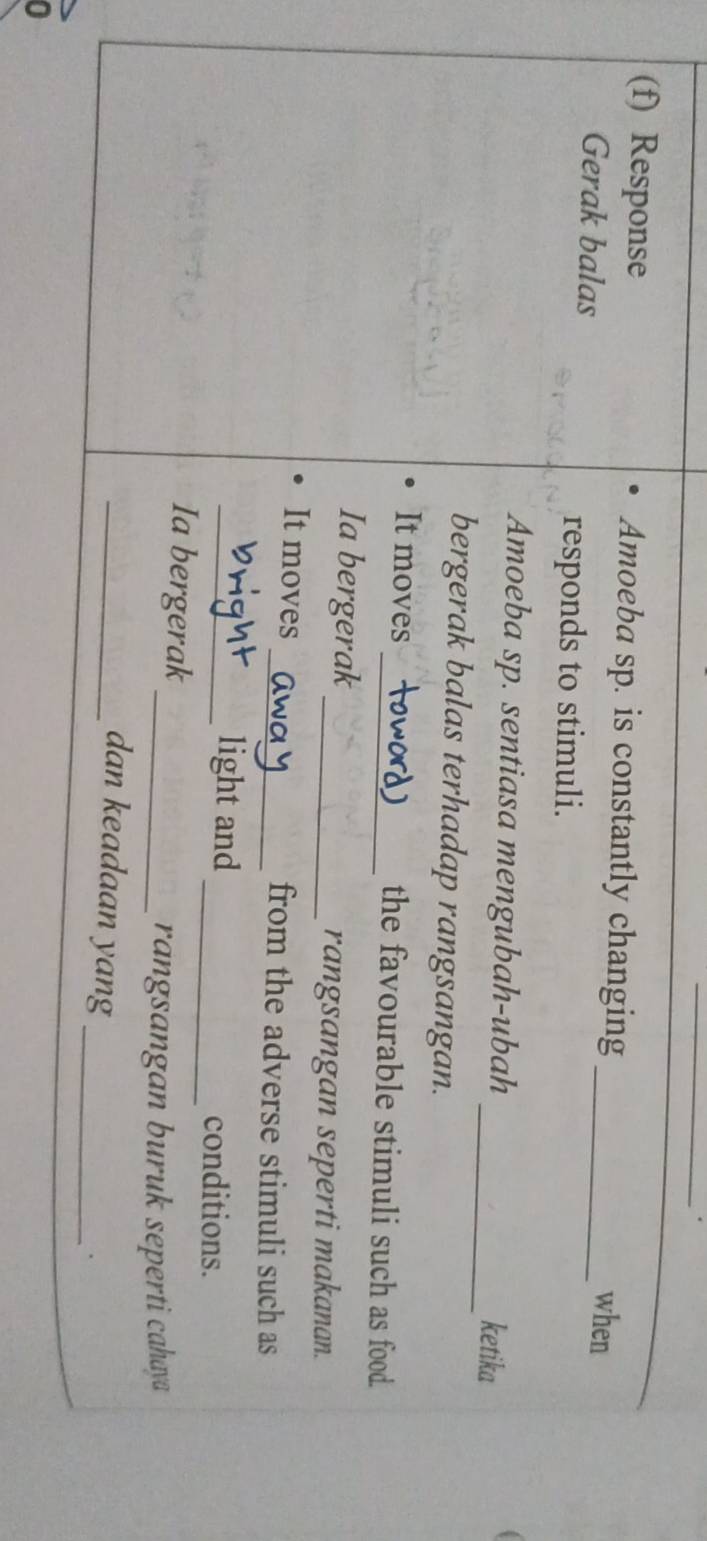 (f) Response
Gerak balas
• Amoeba sp. is constantly changing ________ when
responds to stimuli.
Amoeba sp. sentiasa mengubah-ubah ________ ketika
bergerak balas terhadap rangsangan.
• It moves toward the favourable stimuli such as food.
Ia bergerak ________ rangsangan seperti makanan.
• It moves away from the adverse stimuli such as
bright light and ________ conditions.
Ia bergerak ________ rangsangan buruk seperti cahaya
________ dan keadaan yang ________.